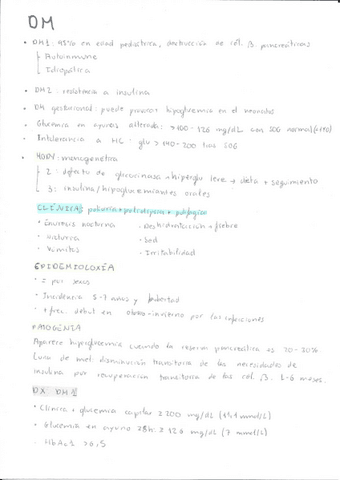 DM
• DM1: 95% en edad pediátrica, destrucción de cél. β pancreáticas
Autoinmune
Idiopática
• DM2: resistencia a insulina
• DM gestacional: puede provocar hipoglucemia en el neonato
• Glucemia en ayunas alterada: >100-126 mg/dL con SOG normal
• Intolerancia a HC: glu >140-200 tras SOG
• MODY: monogenética
2: defecto de glucokinasa → hiperglu leve → dieta + seguimiento
3: insulina/hipoglucemiantes orales
CLÍNICA: poliuria + polidipsia + polifagia
• Enuresis nocturna - Deshidratación + fiebre
• Astenia - Sed
• Vómitos - Irritabilidad
EPIDEMIOLOXÍA
• = por sexos
• Incidencia 5-7 anos y pubertad
• + frec. debut en otoño-invierno por las infecciones
PATOGENIA
Aparece hiperglucemia cuando la reserva pancreática es 20-30%
Luna de miel: disminución transitoria de las necesidades de
insulina por recuperación transitoria de las cél. β. 2-6 meses.
DX DM1
• Clínica + glucemia capilar ≥200 mg/dL (11,1 mmol/L)
• Glucemia en ayuno ≥8h: ≥126 mg/dL (7 mmol/L)
• HbAc1 >6,5